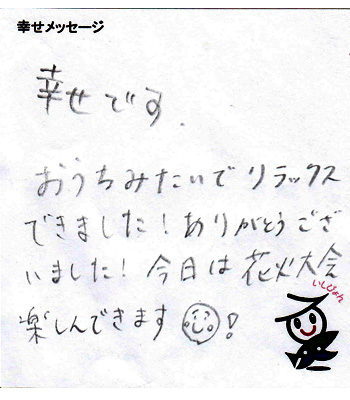 幸せメッセージ
幸せです.
おうちみたいでリラックス
できました!ありがとうござ
いました!今日は花火大会
楽しんできます!
いしぴょん